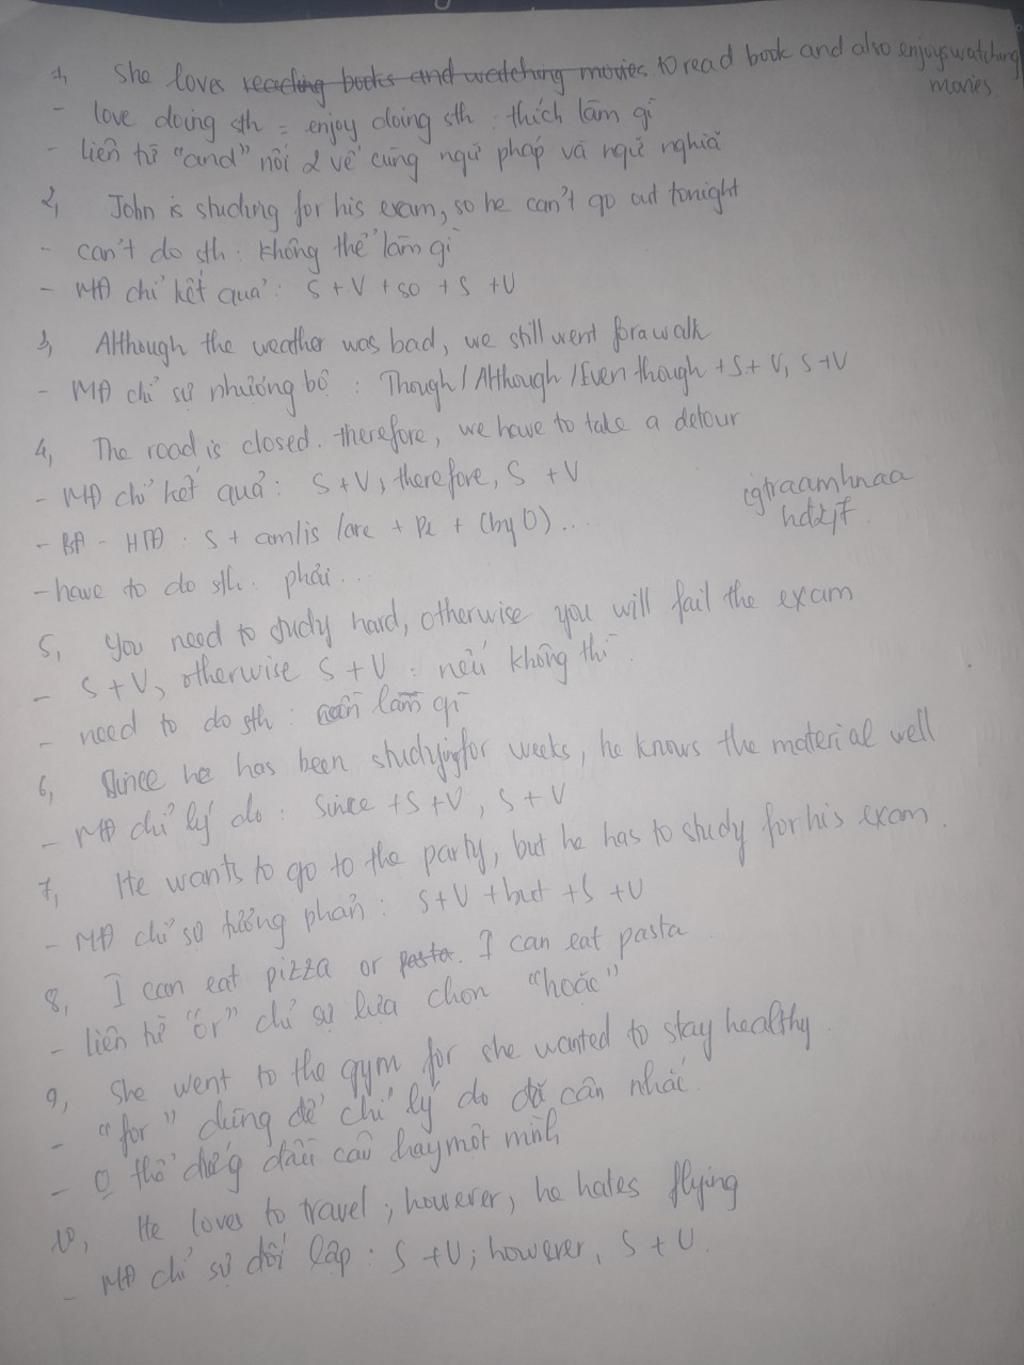 1, She loves reading books and watching movies. to read book and also enjoys watching
movies
- love doing sth = enjoy doing sth : thích làm gì
- liên từ "and" nối 2 vế cùng ngữ pháp và ngữ nghĩa
2, John is studing for his exam, so he can't go out tonight
- can't do sth : không thể làm gì
- MĐ chỉ kết quả : S + V + so + S + V
3, Although the weather was bad, we still went for a walk
- MĐ chỉ sự nhượng bộ : Though / Although / Even though + S + V, S + V
4, The road is closed. therefore, we have to take a detour
- MĐ chỉ kết quả : S + V, therefore, S + V
- BĐ - HTĐ : S + am/is /are + P2 + (by O)...
- have to do sth : phải...
5, You need to study hard, otherwise you will fail the exam
- S + V, otherwise S + V : nếu không thì
- need to do sth : cần làm gì
6, Since he has been studying for weeks, he knows the material well
- MĐ chỉ lý do : Since + S + V, S + V
7, He wants to go to the party, but he has to study for his exam.
- MĐ chỉ sự tương phản : S + V + but + S + V
8, I can eat pizza or pasta. I can eat pasta
- liên từ "or" chỉ sự lựa chọn "hoặc"
9, She went to the gym for she wanted to stay healthy.
- "for" dùng để chỉ lý do đã cân nhắc.
- O thể đứng đầu câu hay một mình
10, He loves to travel ; however, he hates flying
- MĐ chỉ sự đối lập : S + V ; however, S + V.